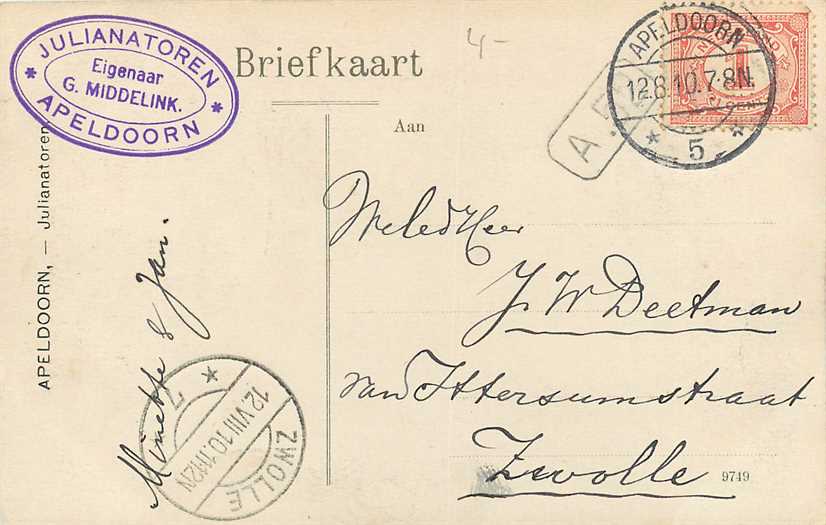 JULIANATOREN
Eigenaar
G. MIDDELINK.
* APELDOORN *
4-
Briefkaart
APELDOORN
12.8.10.7-8N.
* 5 *
A.
Aan
APELDOORN, – Julianatoren
WelEd Heer
J. W. Deetman
van Ittersumstraat
Zwolle
Minette & Jan.
* 7
12.VIII.10.11-12N
ZWOLLE
9749